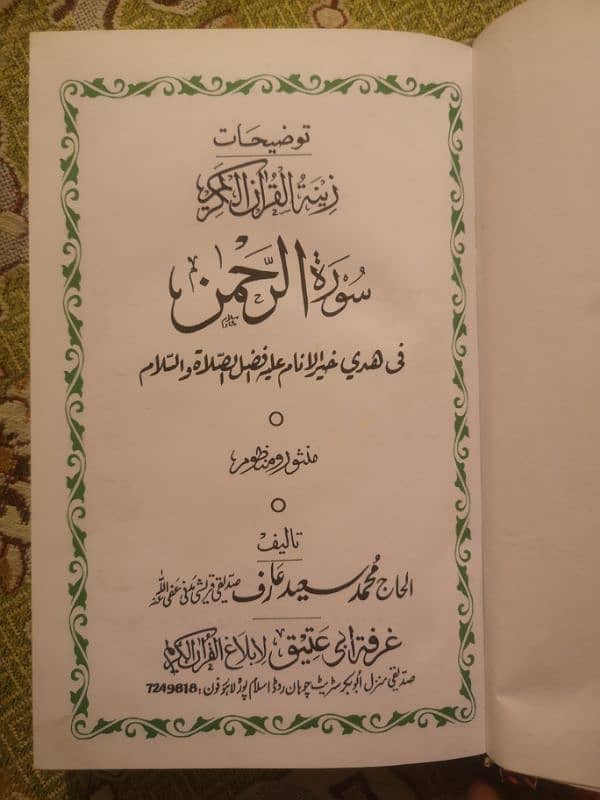 توضیحات
زينة القرآن الكريم
سورة الرحمن
فی هدي خير الانام عليه افضل الصلاة والسلام
منثور و منظوم
تالیف
الحاج محمد سعید عارف صدیقی قریشی مدنی عفی اللہ عنہ
غرفة ابی عتیق لابلاغ القرآن الكريم
صدیقی منزل ابوبکر سٹریٹ چوہان روڈ اسلام پورہ لاہور فون: 7249818